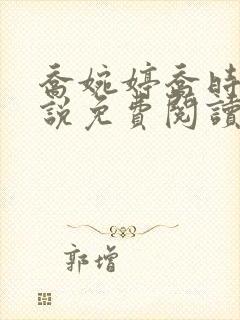 喬婉婷喬時
說免費閱讀
郭增